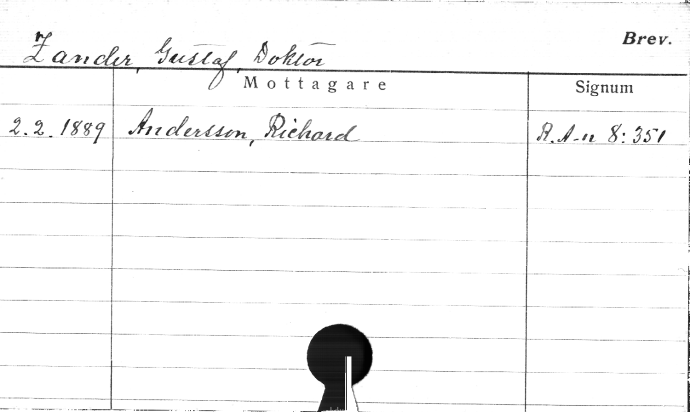 Brev.
Zander, Gustaf, Doktor
Mottagare Signum
2.2.1889 Andersson, Richard R. A-n 8:351